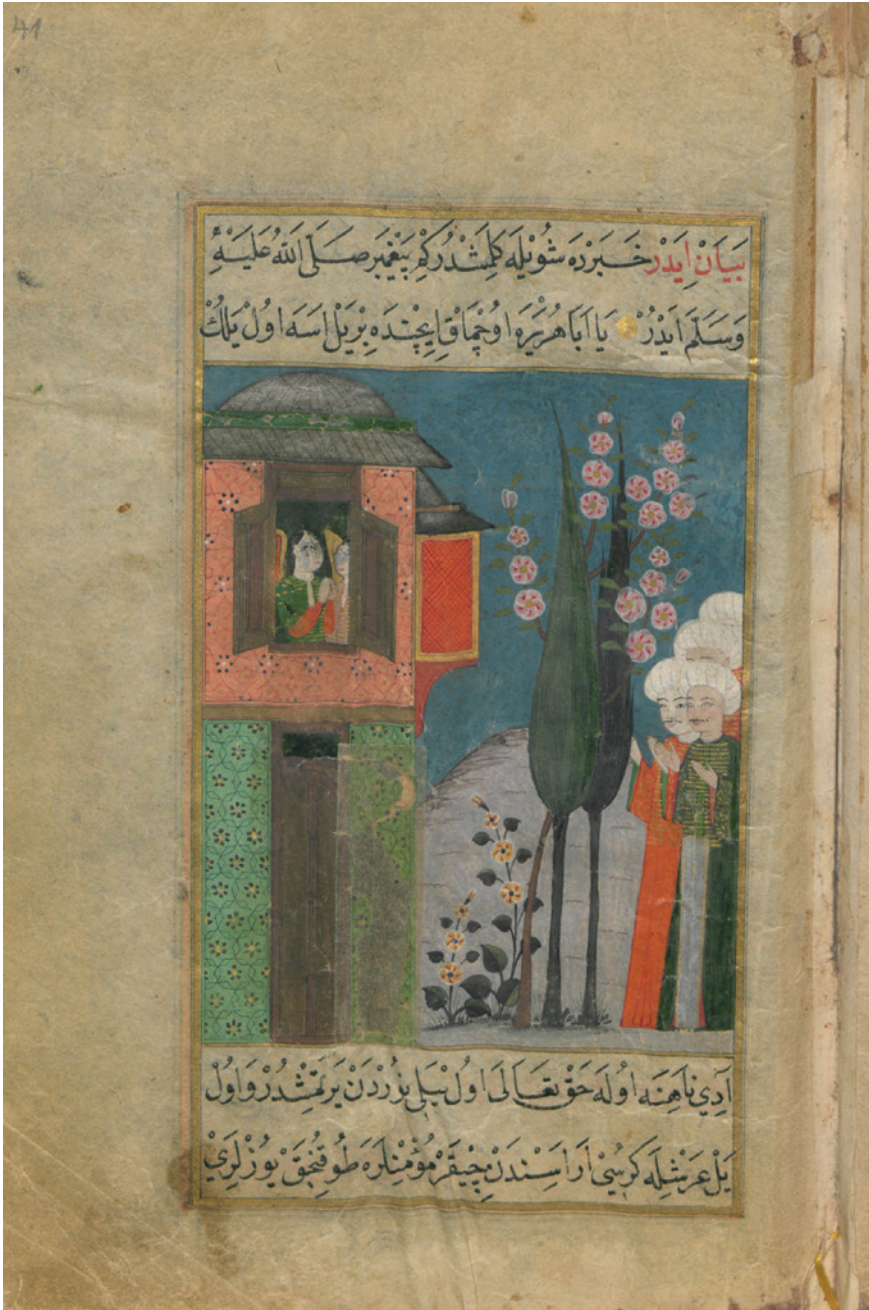 41
بَيَانْ اِيدَرْ خَبَرْدَه شُويْلَه كَلْمِشْدُرْ كِمْ پَيْغَمْبَرْ صَلَّى اللّٰهُ عَلَيْهِ
وَسَلَّمْ اَيْدُرْ يَا اَبَا هُرَيْرَه اوُچْمَاقْ اِيچِنْدَه بِرْ يَلْ اَسَه اوُلْ يَلُكْ
آدِي نَاهِنَه اوُلَه حَقْ تَعَالَى اوُلْ يَلِي نُورْدَنْ يَرَتْمِشْدُرْ وَاوُلْ
يَلْ عَرْشِلَه كُرْسِيْ آرَاسِنْدَنْ چِيقَرْ مُؤْمِنْلَرَه طُوقُنِجَقْ يوُزْلَرِيْ